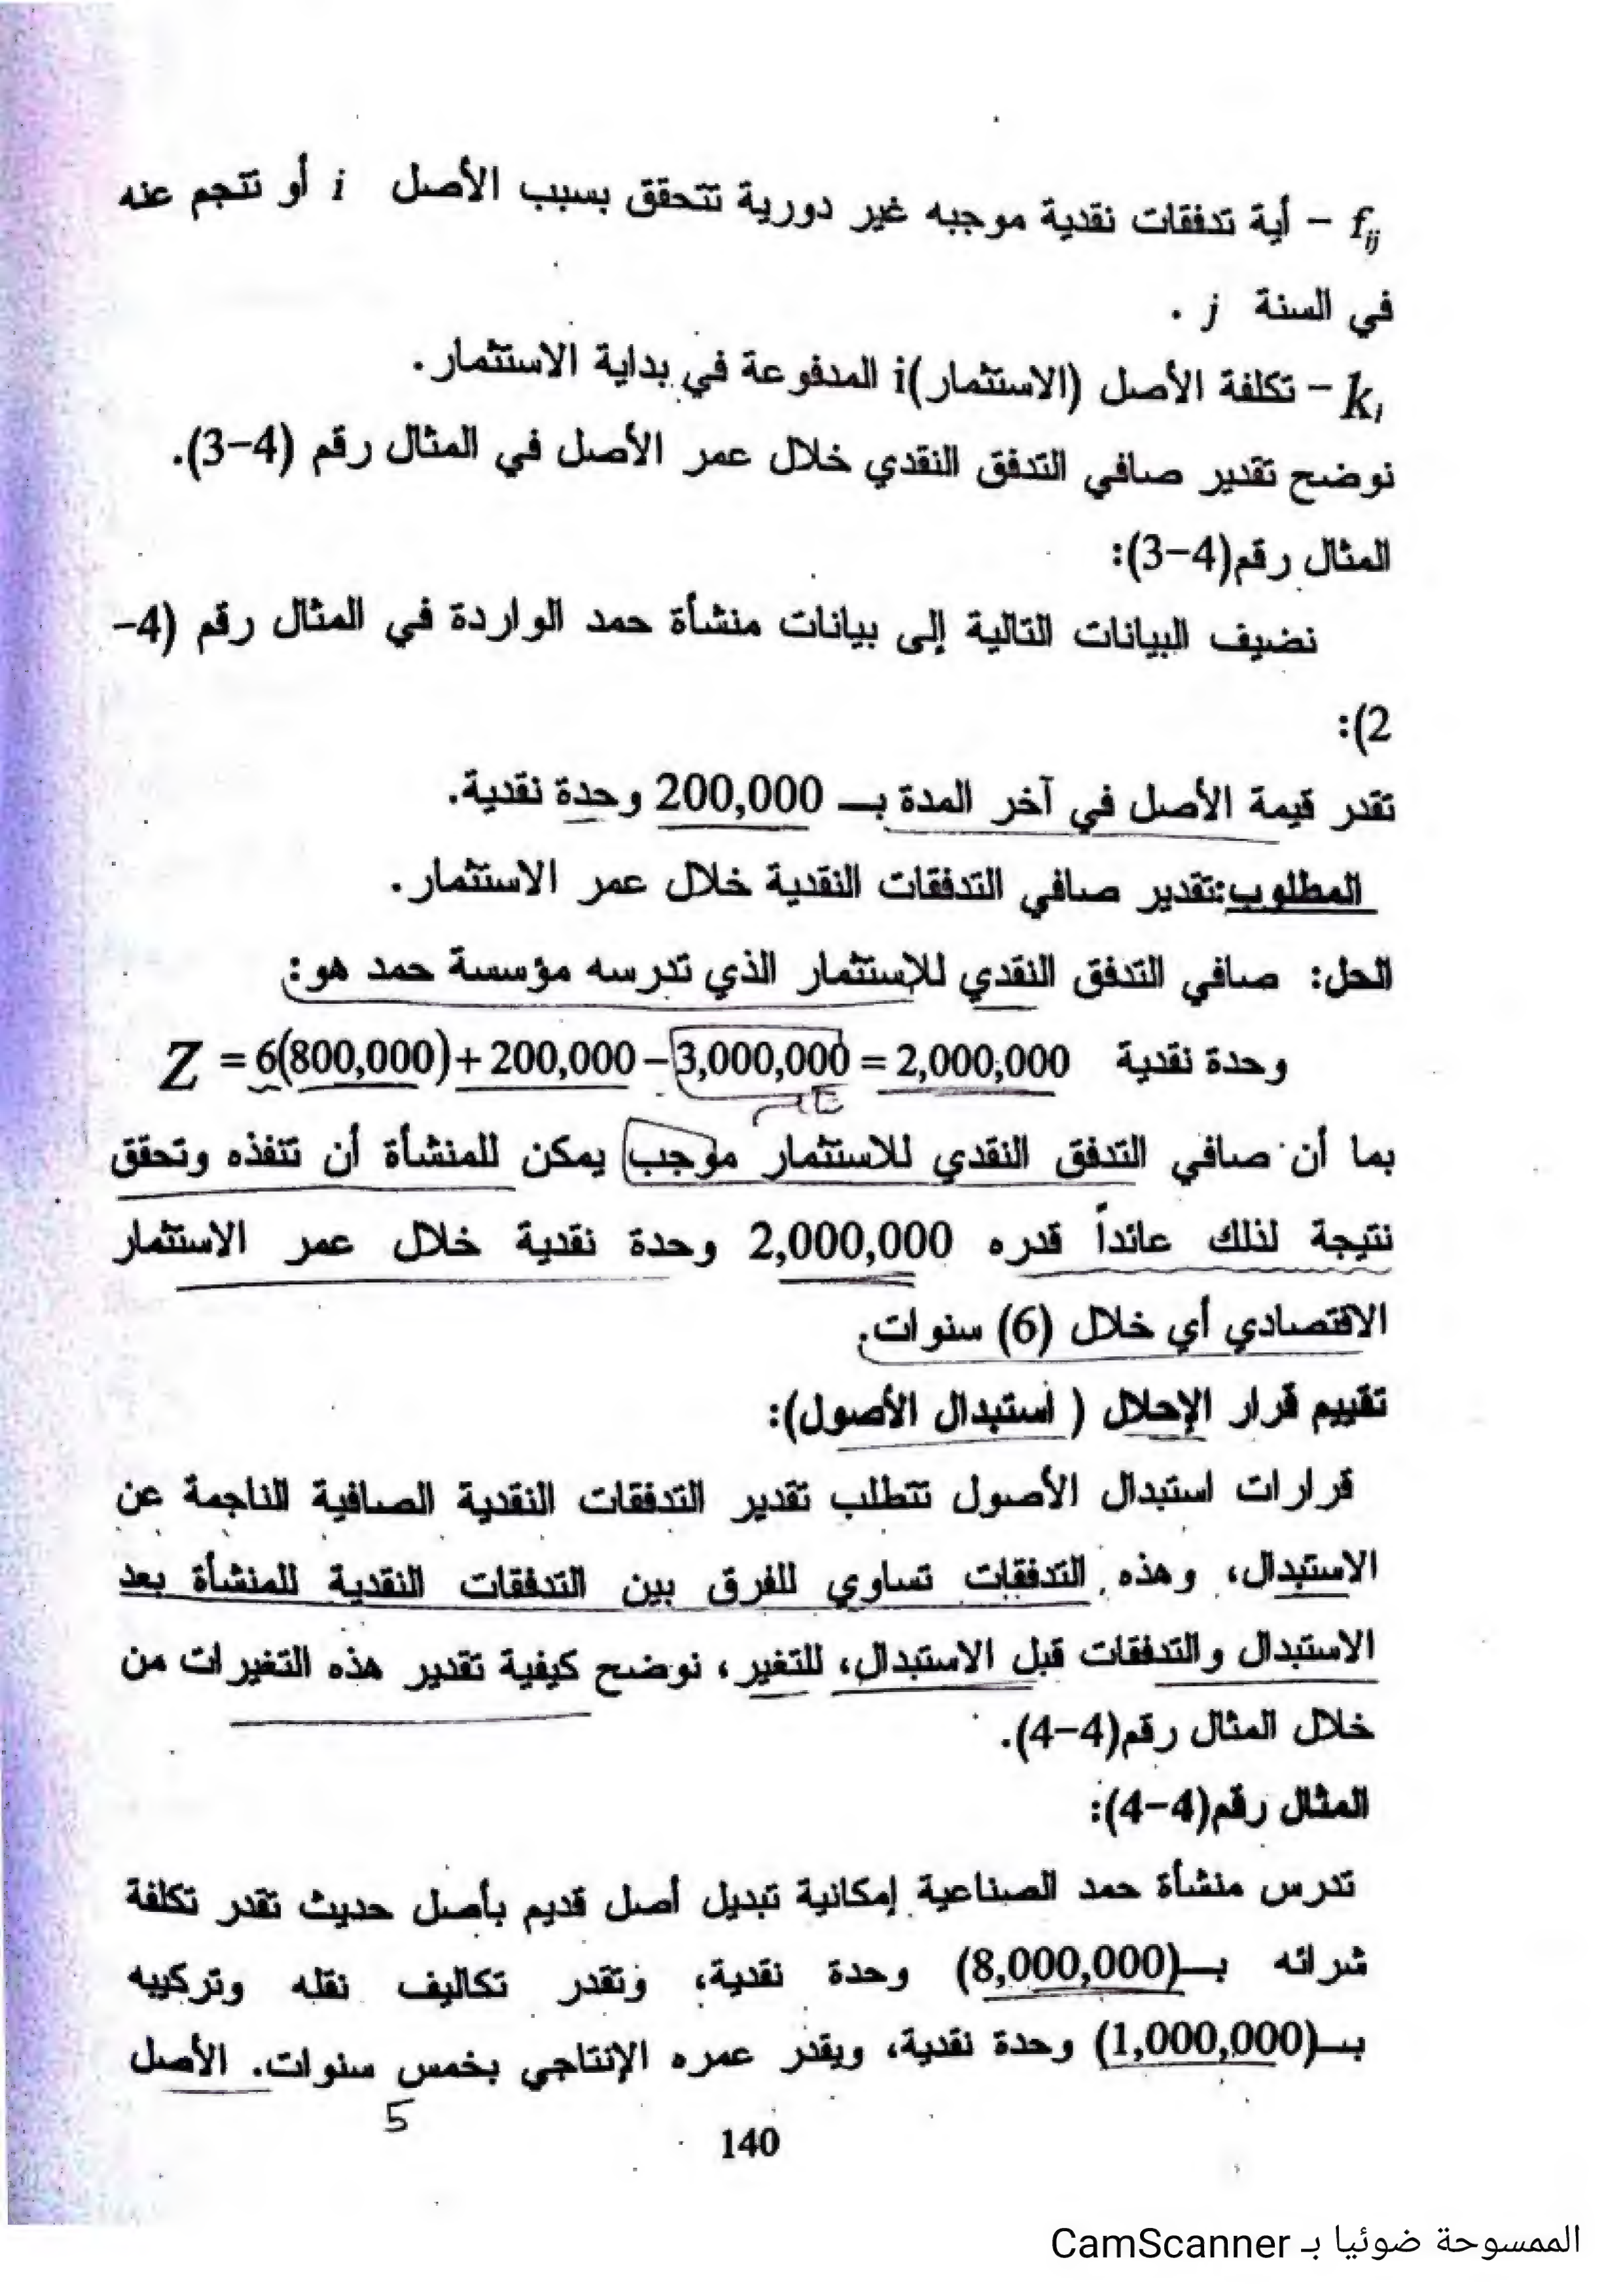 f_ij – أية تدفقات نقدية موجبه غير دورية تتحقق بسبب الأصل i أو تنجم عنه
في السنة j .
k_i – تكلفة الأصل (الاستثمار)i المدفوعة في بداية الاستثمار.
نوضح تقدير صافي التدفق النقدي خلال عمر الأصل في المثال رقم (4-3).
المثال رقم(4-3):
نضيف البيانات التالية إلى بيانات منشأة حمد الواردة في المثال رقم (4-
2):
تقدر قيمة الأصل في آخر المدة بـ 200,000 وحدة نقدية.
المطلوب:تقدير صافي التدفقات النقدية خلال عمر الاستثمار.
الحل: صافي التدفق النقدي للإستثمار الذي تدرسه مؤسسة حمد هو:
Z = 6(800,000)+ 200,000 – 3,000,000 = 2,000,000 وحدة نقدية
بما أن صافي التدفق النقدي للاستثمار موجب يمكن للمنشأة أن تنفذه وتحقق
نتيجة لذلك عائداً قدره 2,000,000 وحدة نقدية خلال عمر الاستثمار
الاقتصادي أي خلال (6) سنوات.
تقييم قرار الإحلال ( استبدال الأصول):
قرارات استبدال الأصول تتطلب تقدير التدفقات النقدية الصافية الناجمة عن
الاستبدال، وهذه التدفقات تساوي للفرق بين التدفقات النقدية للمنشأة بعد
الاستبدال والتدفقات قبل الاستبدال، للتغير، نوضح كيفية تقدير هذه التغيرات من
خلال المثال رقم(4-4).
المثال رقم(4-4):
تدرس منشأة حمد الصناعية إمكانية تبديل أصل قديم بأصل حديث تقدر تكلفة
شرائه بـ(8,000,000) وحدة نقدية، وتقدر تكاليف نقله وتركيبه
بـ(1,000,000) وحدة نقدية، ويقدر عمره الإنتاجي بخمس سنوات. الأصل
5
140
الممسوحة ضوئيا بـ CamScanner